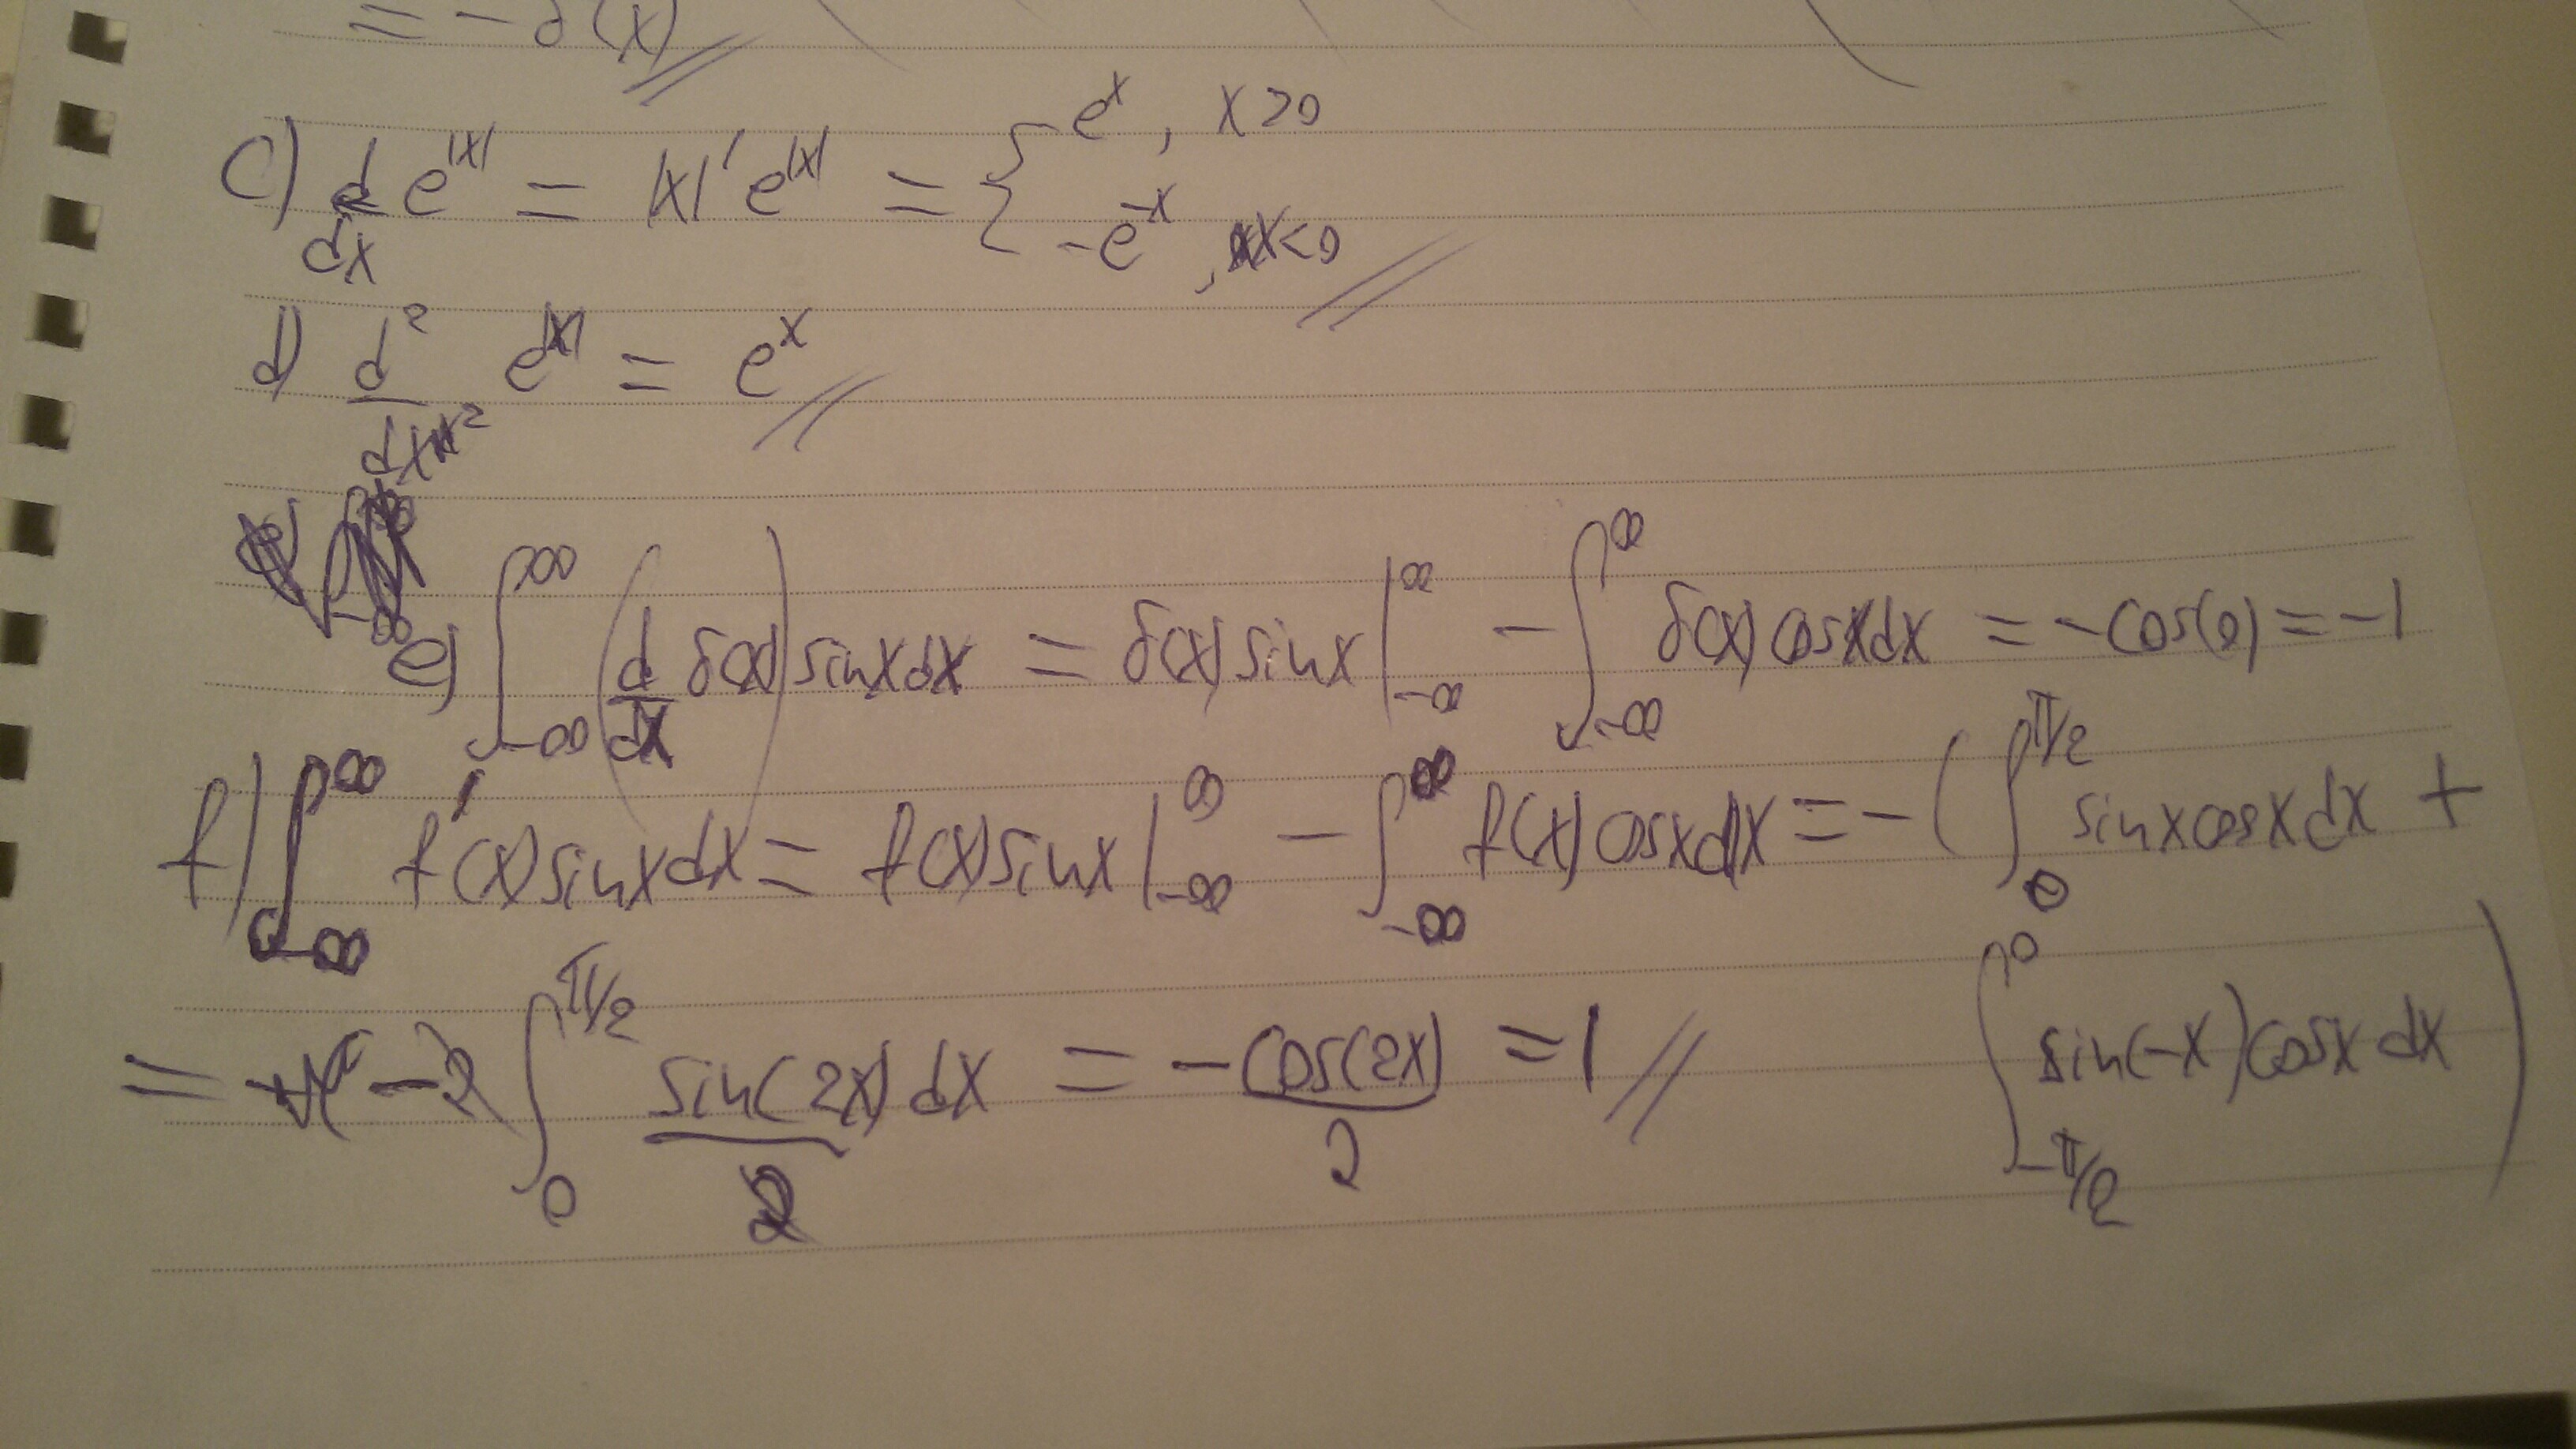 = -δ(x)
c) d/dx e^|x| = |x|' e^|x| = { e^x , x>0
-e^-x , x<0
d) d²/dx² e^|x| = e^x
e) ∫_-∞^∞ (d/dx δ(x)) sinx dx = δ(x) sinx |_-∞^∞ - ∫_-∞^∞ δ(x) cosx dx = -cos(0) = -1
f) ∫_-∞^∞ f'(x) sinx dx = f(x) sinx |_-∞^∞ - ∫_-∞^∞ f(x) cosx dx = -( ∫_0^π/2 sinx cosx dx +
∫_-π/2^0 sin(-x) cosx dx )
= -2 ∫_0^π/2 sin(2x)/2 dx = -cos(2x)/2 = 1